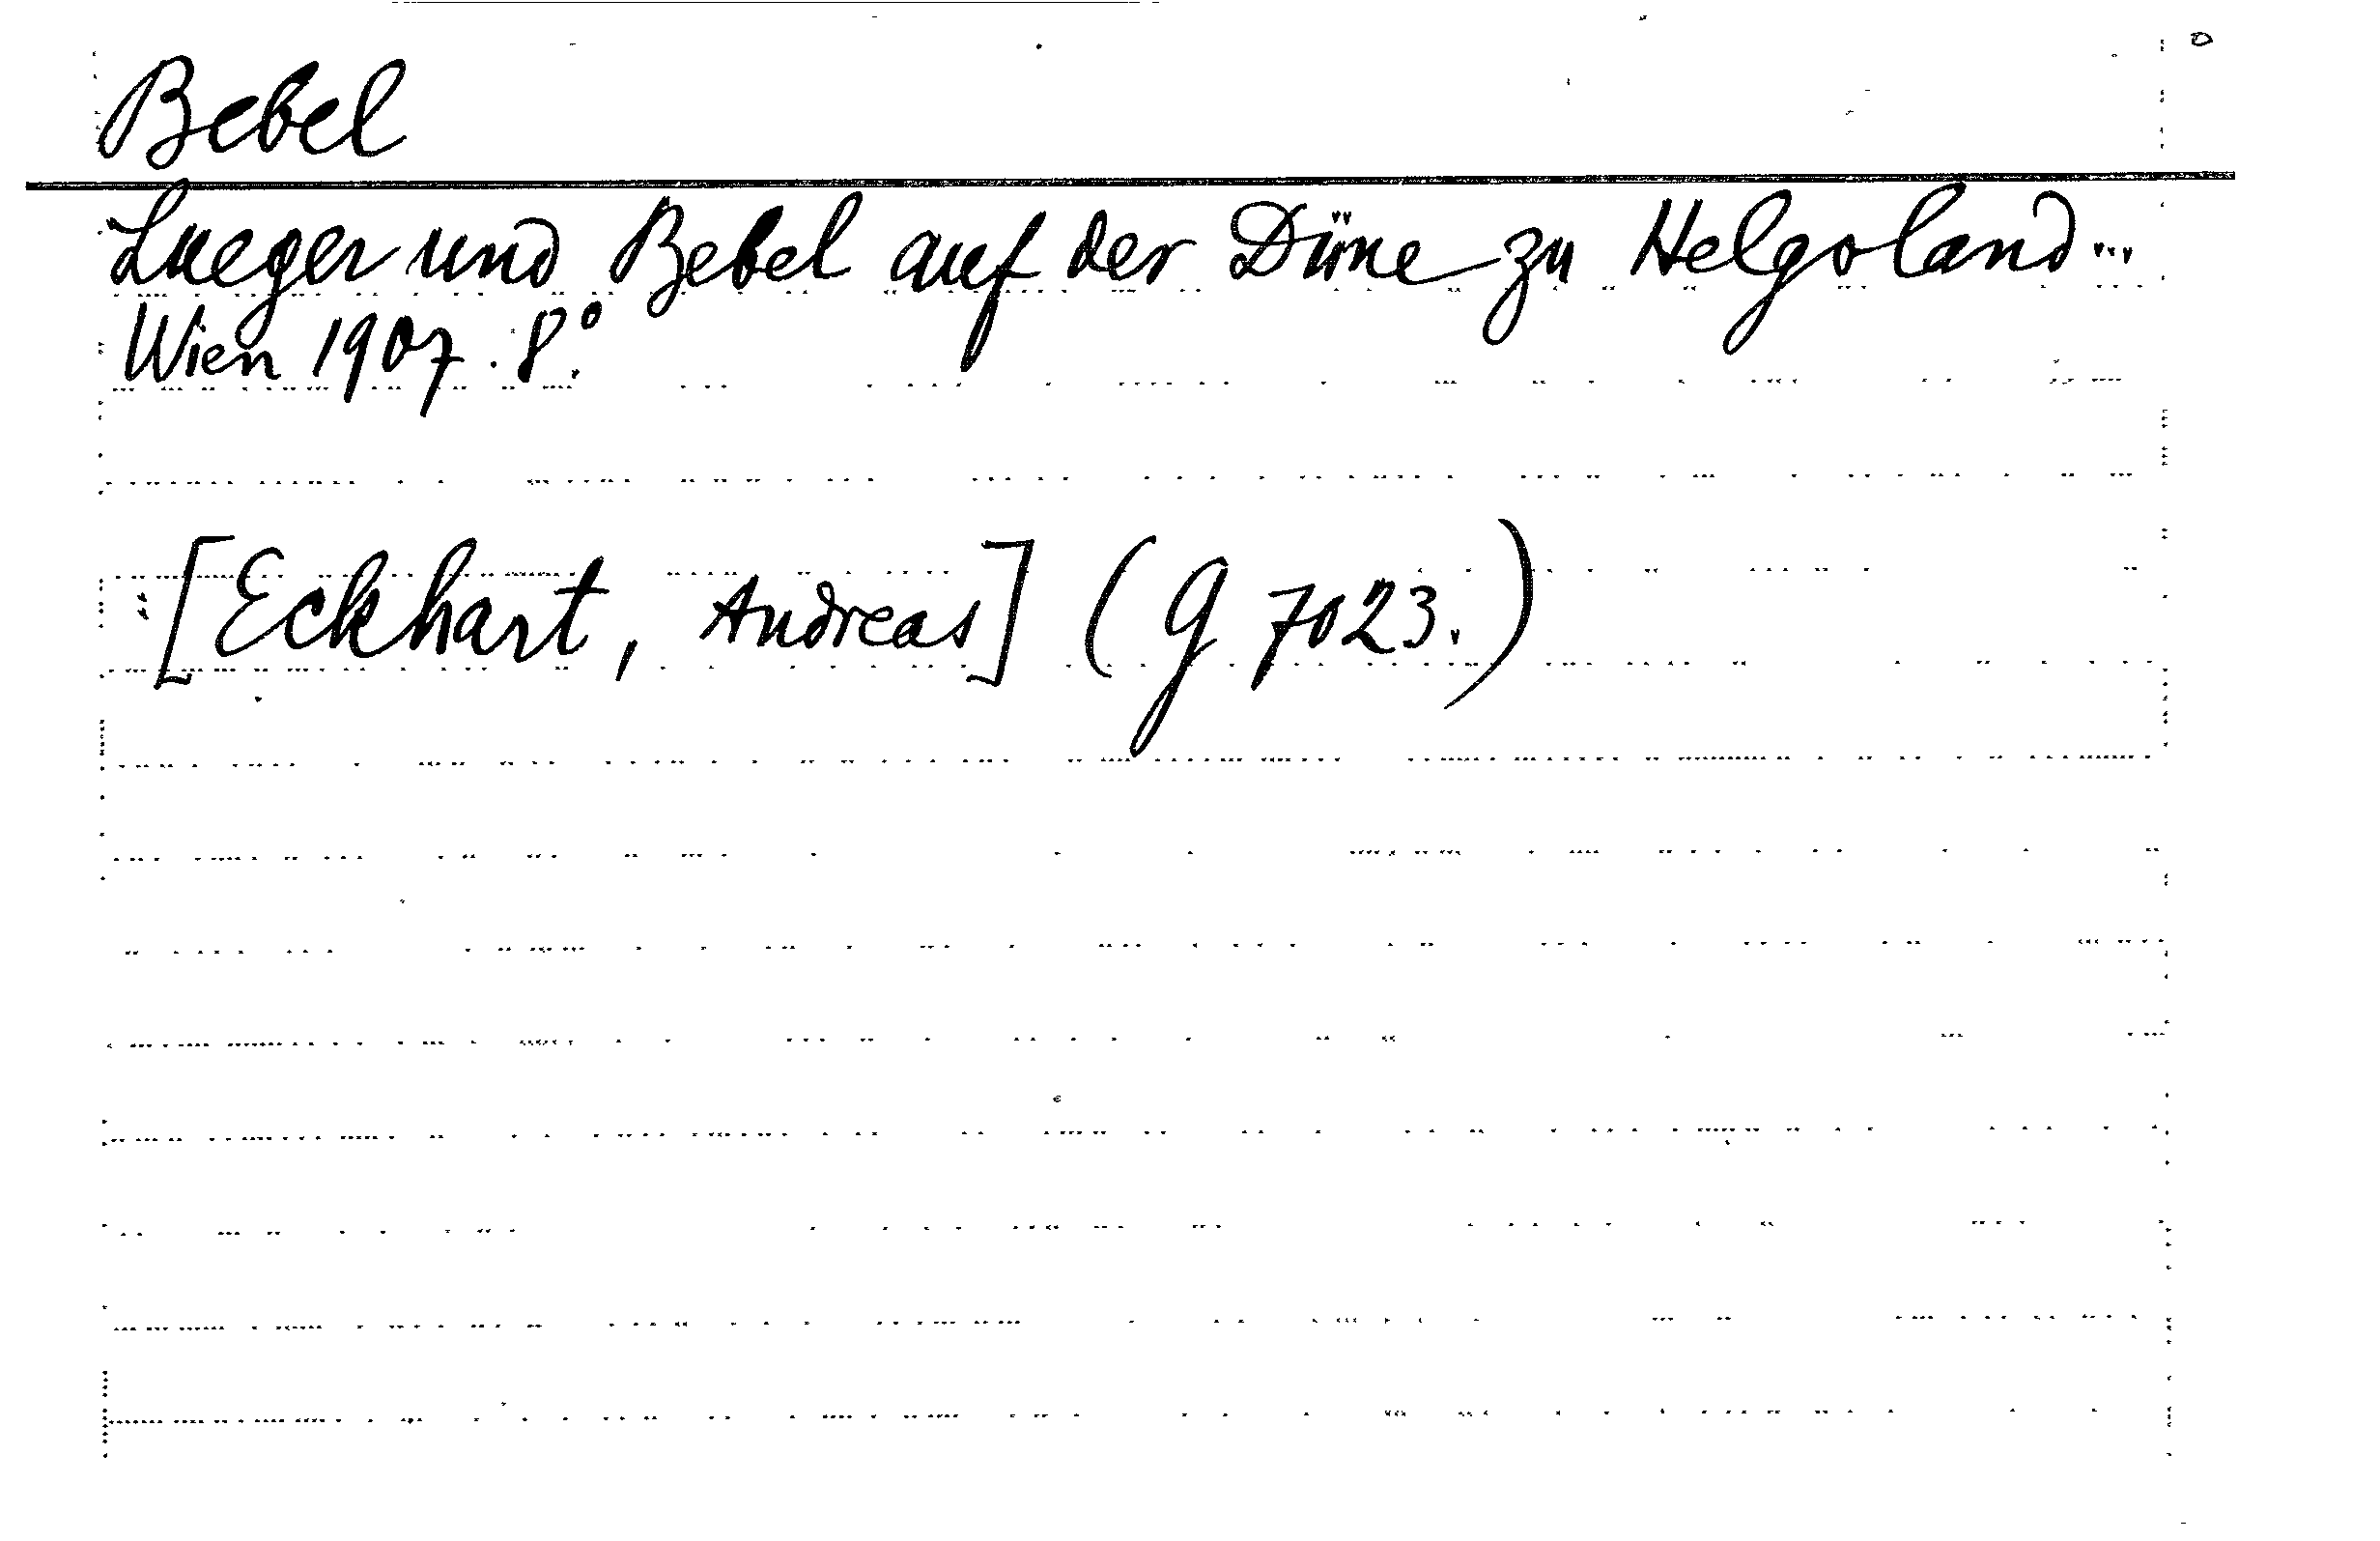 Bebel
Lueger und Bebel auf der Düne zu Helgoland...
Wien 1907. 8°.
: [Eckhart, Andreas] (G 7023.)